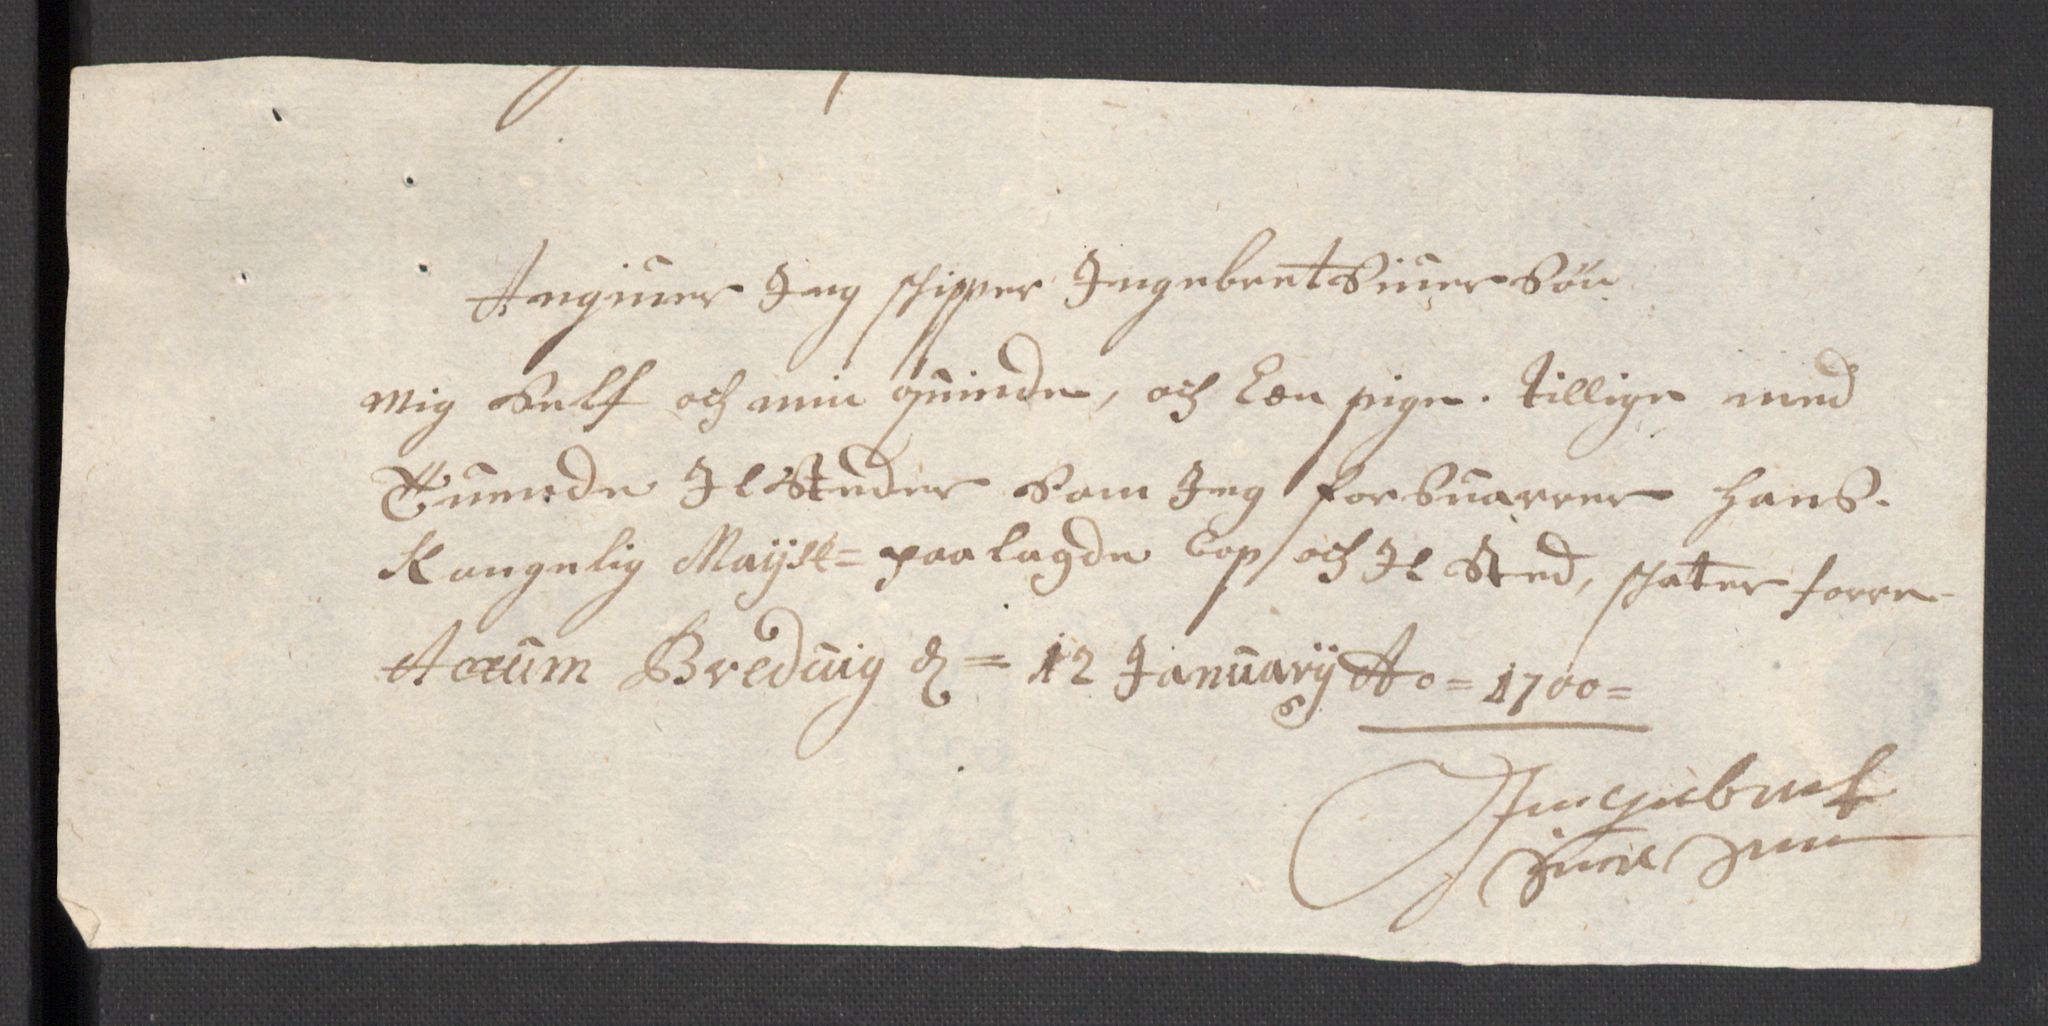 Angiuer Jeg schipper Ingebret Siuer Søn
mig Self och min quinde, och Een pige. tillige med
Tuende Jlsteder Som Jeg forSuarrer Hans.
Kongelig Mayst= paalagde Cop och Jl Sted, schater forre
Actum Breduig d = 12 January Ao = 1700=
Inngebret